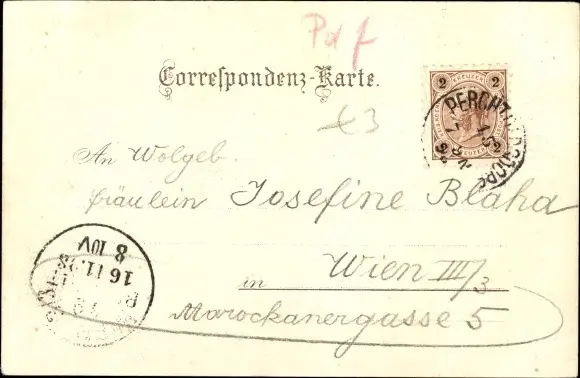 Pdf
Correspondenz-Karte.
2 KREUZER 2
PERCHTOLDSDORF
2 2
€3
An Wolgeb.
Fräulein Josefine Blaha
in Wien III/3
Marockanergasse 5
16 11.
8 10V